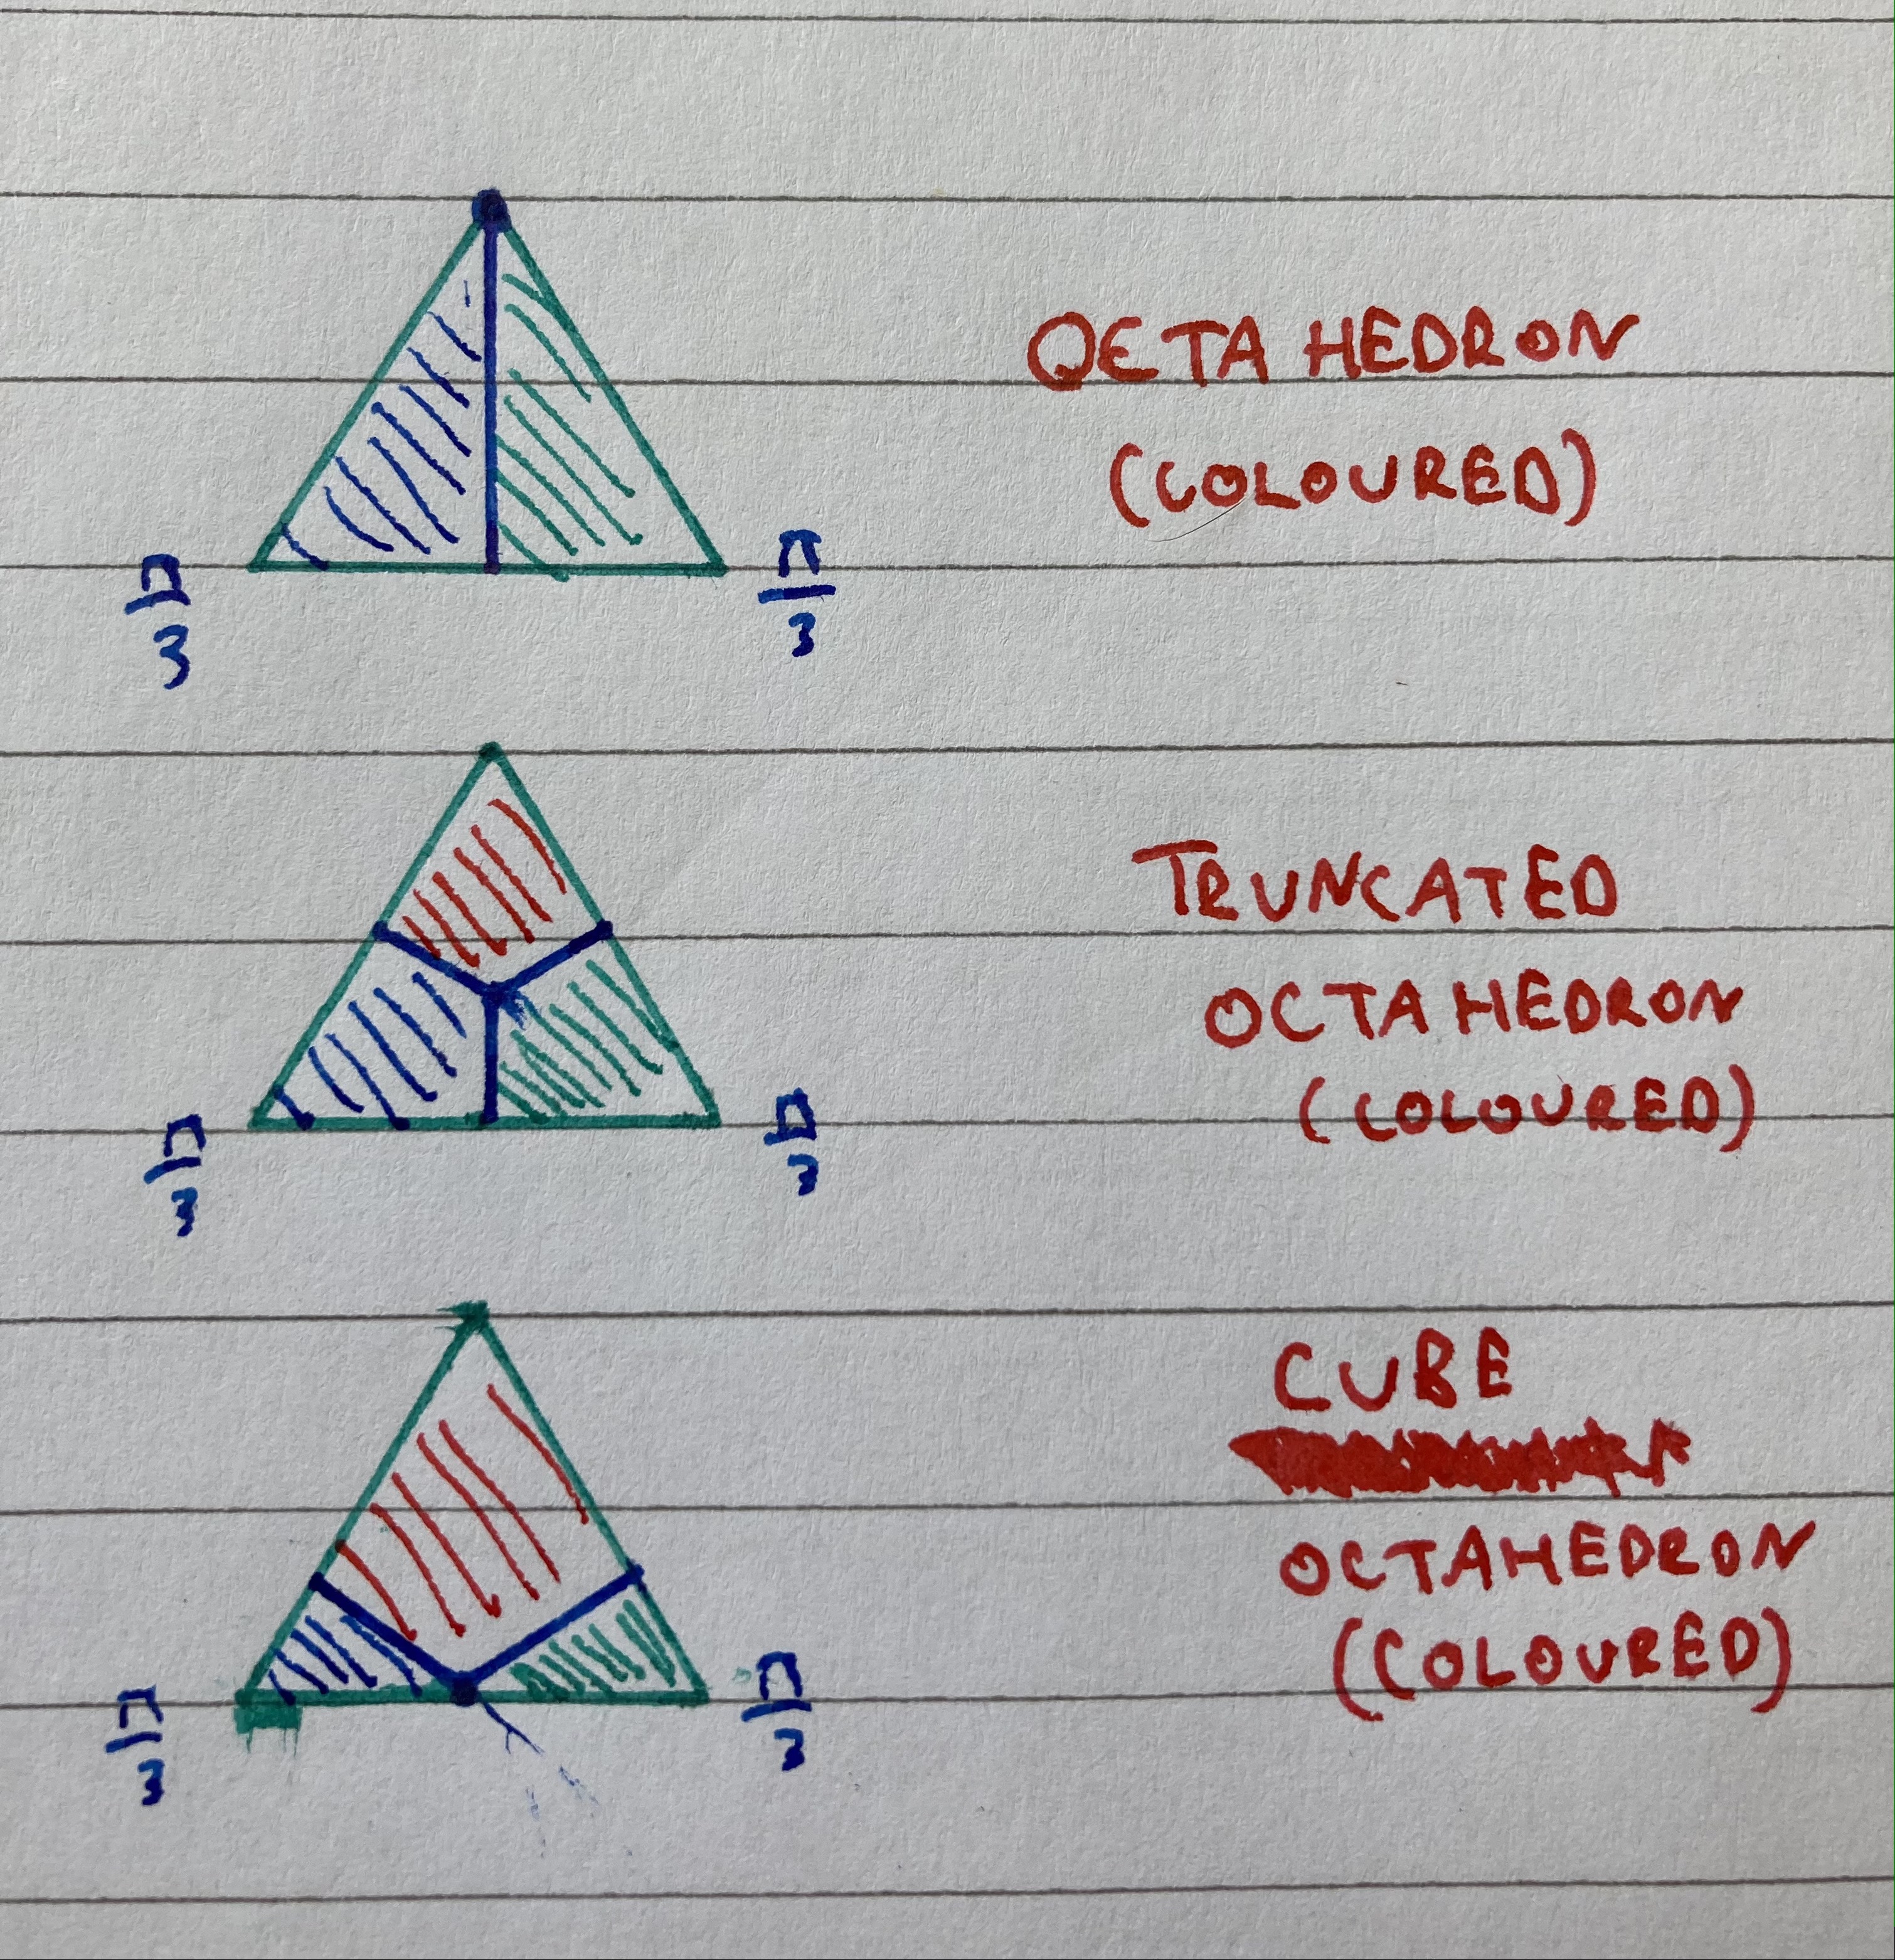 OCTAHEDRON
(COLOURED)
π/3 π/3
TRUNCATED
OCTAHEDRON
(COLOURED)
π/3 π/3
CUBE
OCTAHEDRON
(COLOURED)
π/3 π/3